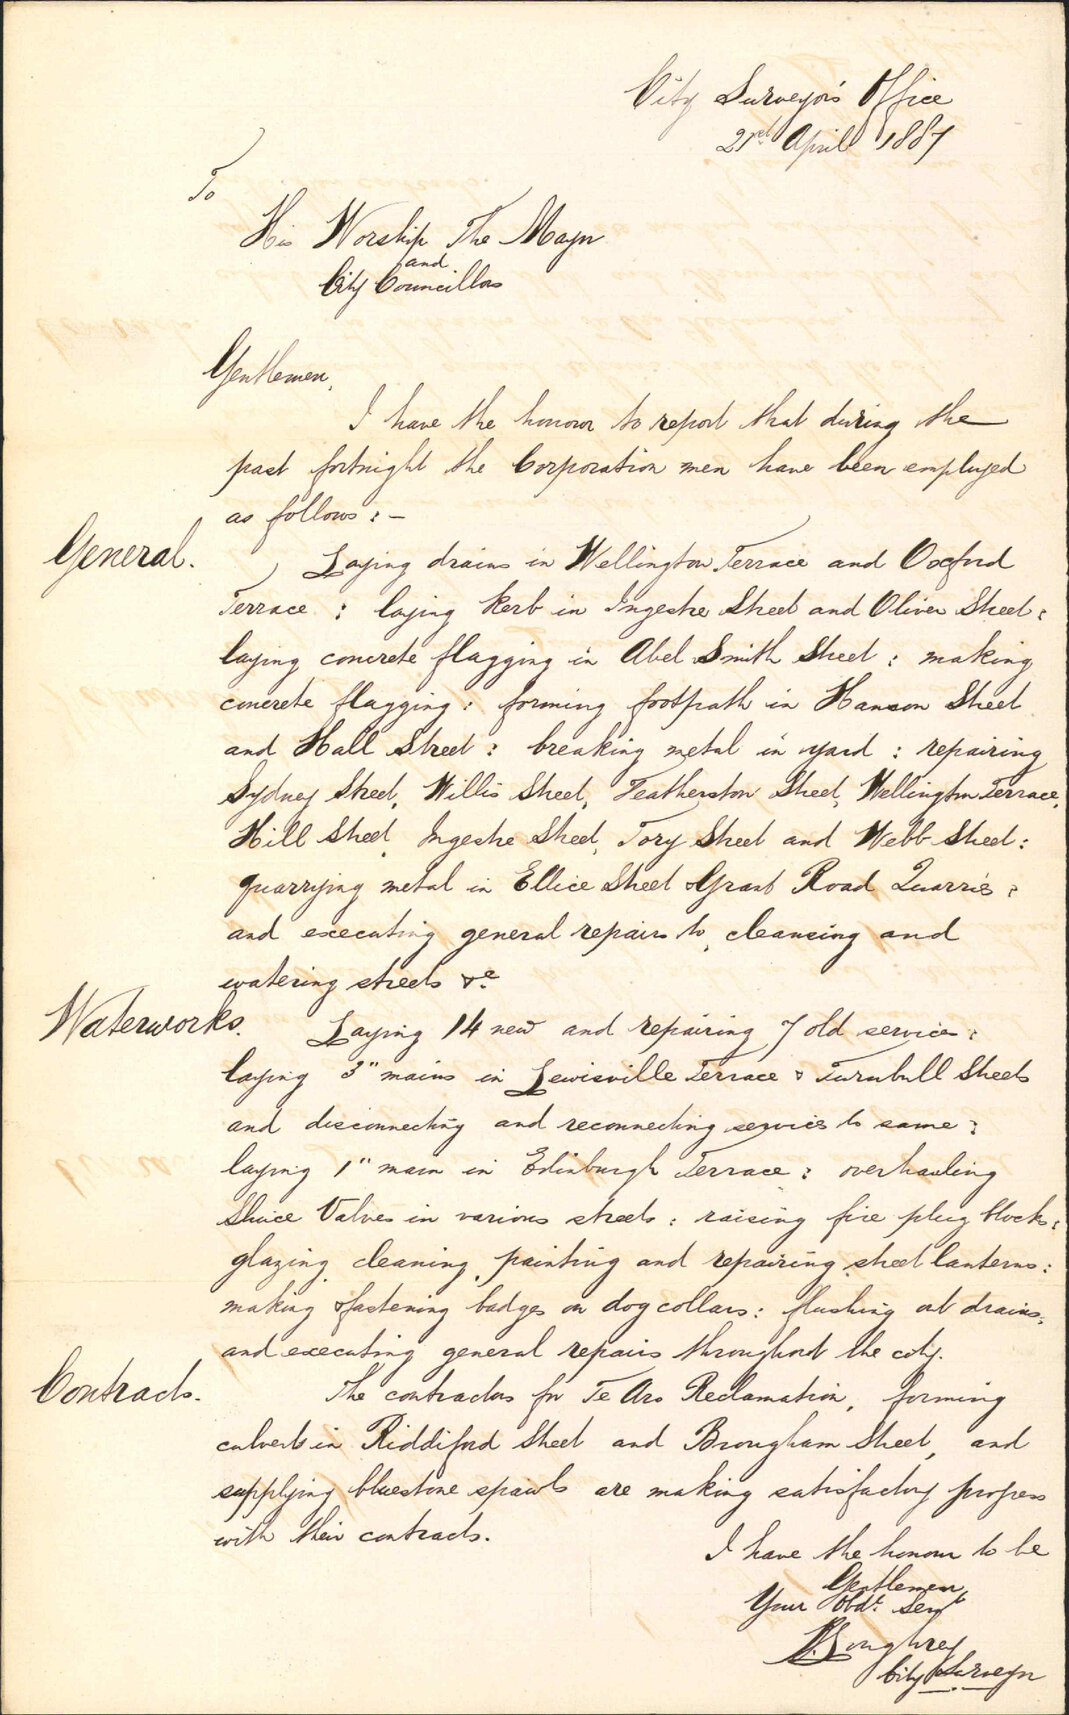 City Surveyor's Office
21st April 1887
To
His Worship The Mayor
and
City Councillors
Gentlemen,
I have the honour to report that during the
past fortnight the Corporation men have been employed
as follows : —
General.
Laying drains in Wellington Terrace and Oxford
Terrace : laying kerb in Ingestre Street and Oliver Street :
laying concrete flagging in Abel Smith Street : making
concrete flagging : forming footpath in Hanson Street
and Hall Street : breaking metal in yard : repairing
Sydney Street, Willis Street, Featherston Street, Wellington Terrace,
Hill Street, Ingestre Street, Tory Street and Webb Street :
quarrying metal in Ellice Street & Grant Road Quarries :
and executing general repairs to, cleansing and
watering streets &c
Waterworks.
Laying 14 new and repairing 7 old services :
laying 3" mains in Lewisville Terrace & Turnbull Streets
and disconnecting and reconnecting services to same :
laying 1" main in Edinburgh Terrace : overhauling
Sluice Valves in various streets : raising fire plug blocks :
glazing, cleaning, painting and repairing street lanterns :
making & fastening badges on dog collars : flushing out drains,
and executing general repairs throughout the city.
Contracts.
The contractors for Te Aro Reclamation, forming
culverts in Riddiford Street and Brougham Street, and
supplying bluestone spawls are making satisfactory progress
with their contracts.
I have the honour to be
Gentlemen,
Your Obdt. Servt
Loughrey
City Surveyor